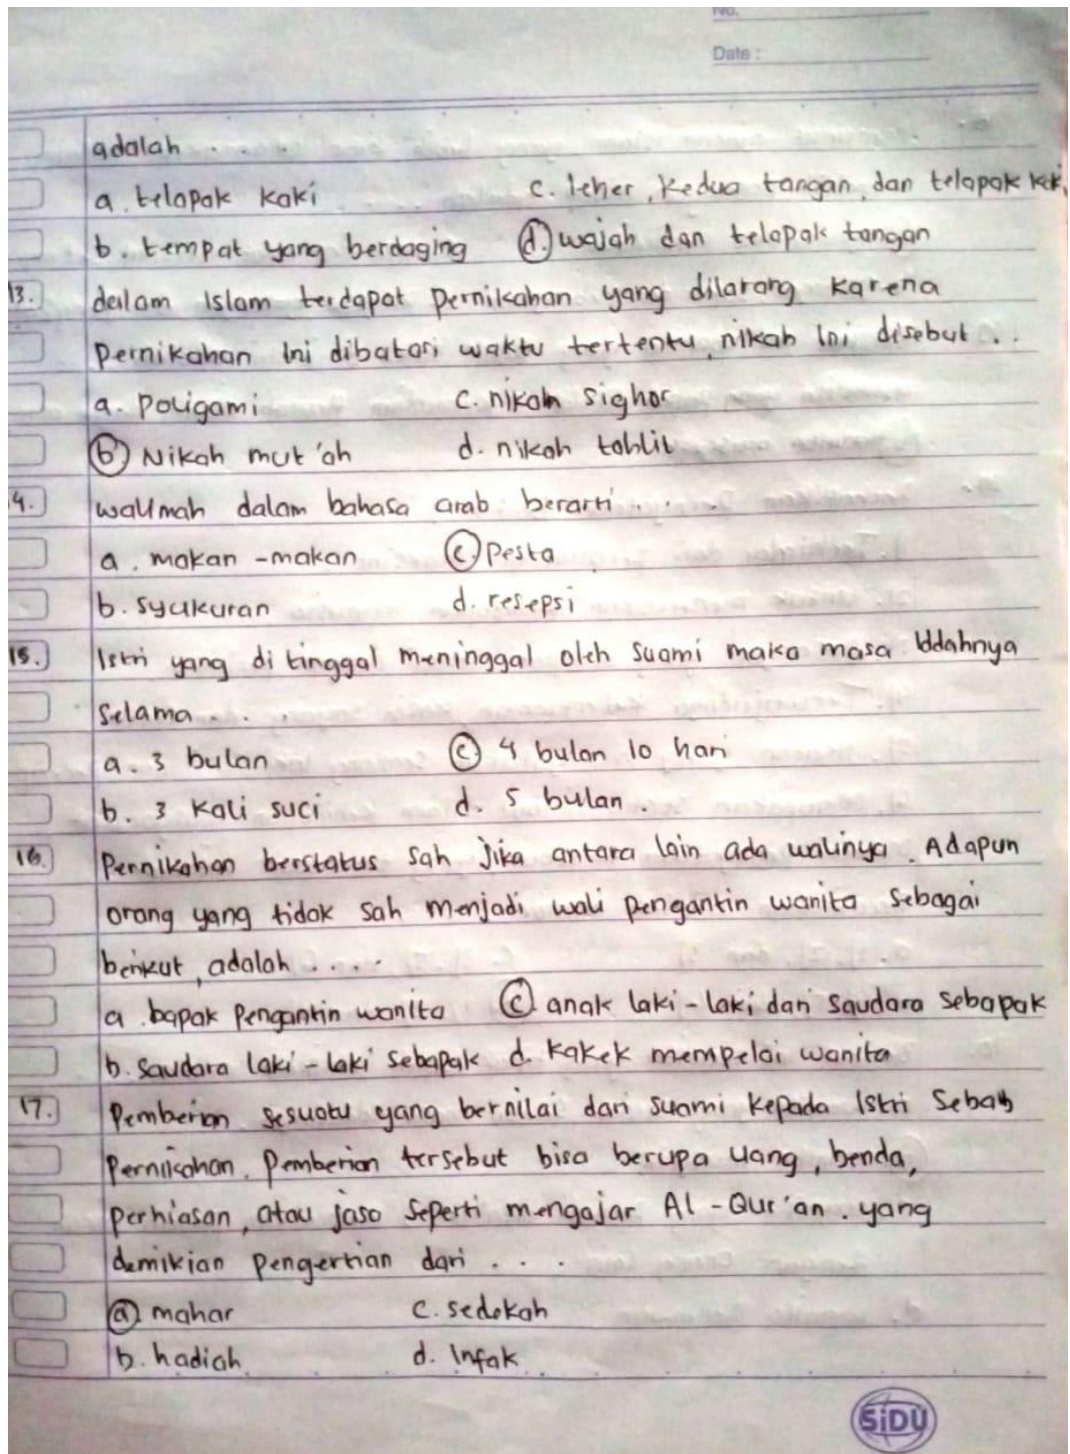 No.
Date :
adalah . . . .
a. telapak kaki c. leher, kedua tangan, dan telapak
b. tempat yang berdaging d. wajah dan telapak tangan
13. dalam Islam terdapat pernikahan yang dilarang karena
pernikahan ini dibatasi waktu tertentu, nikah ini disebut ..
a. poligami c. nikah sighor
b. Nikah mut'ah d. nikah tahlil
4. walimah dalam bahasa arab berarti . . . .
a. makan - makan c. Pesta
b. syukuran d. resepsi
15. Istri yang di tinggal meninggal oleh suami maka masa Iddahnya
selama . . .
a. 3 bulan c. 4 bulan 10 hari
b. 3 kali suci d. 5 bulan.
16. Pernikahan berstatus sah jika antara lain ada walinya. Adapun
orang yang tidak sah menjadi wali pengantin wanita sebagai
berikut, adalah ....
a. bapak pengantin wanita c. anak laki-laki dari saudara sebapak
b. saudara laki-laki sebapak d. kakek mempelai wanita
17. Pemberian sesuatu yang bernilai dari suami kepada Istri sebab
pernikahan. Pemberian tersebut bisa berupa uang, benda,
perhiasan, atau jasa seperti mengajar Al-Qur'an. yang
demikian pengertian dari . . .
a. mahar c. sedekah
b. hadiah d. Infak
SiDU